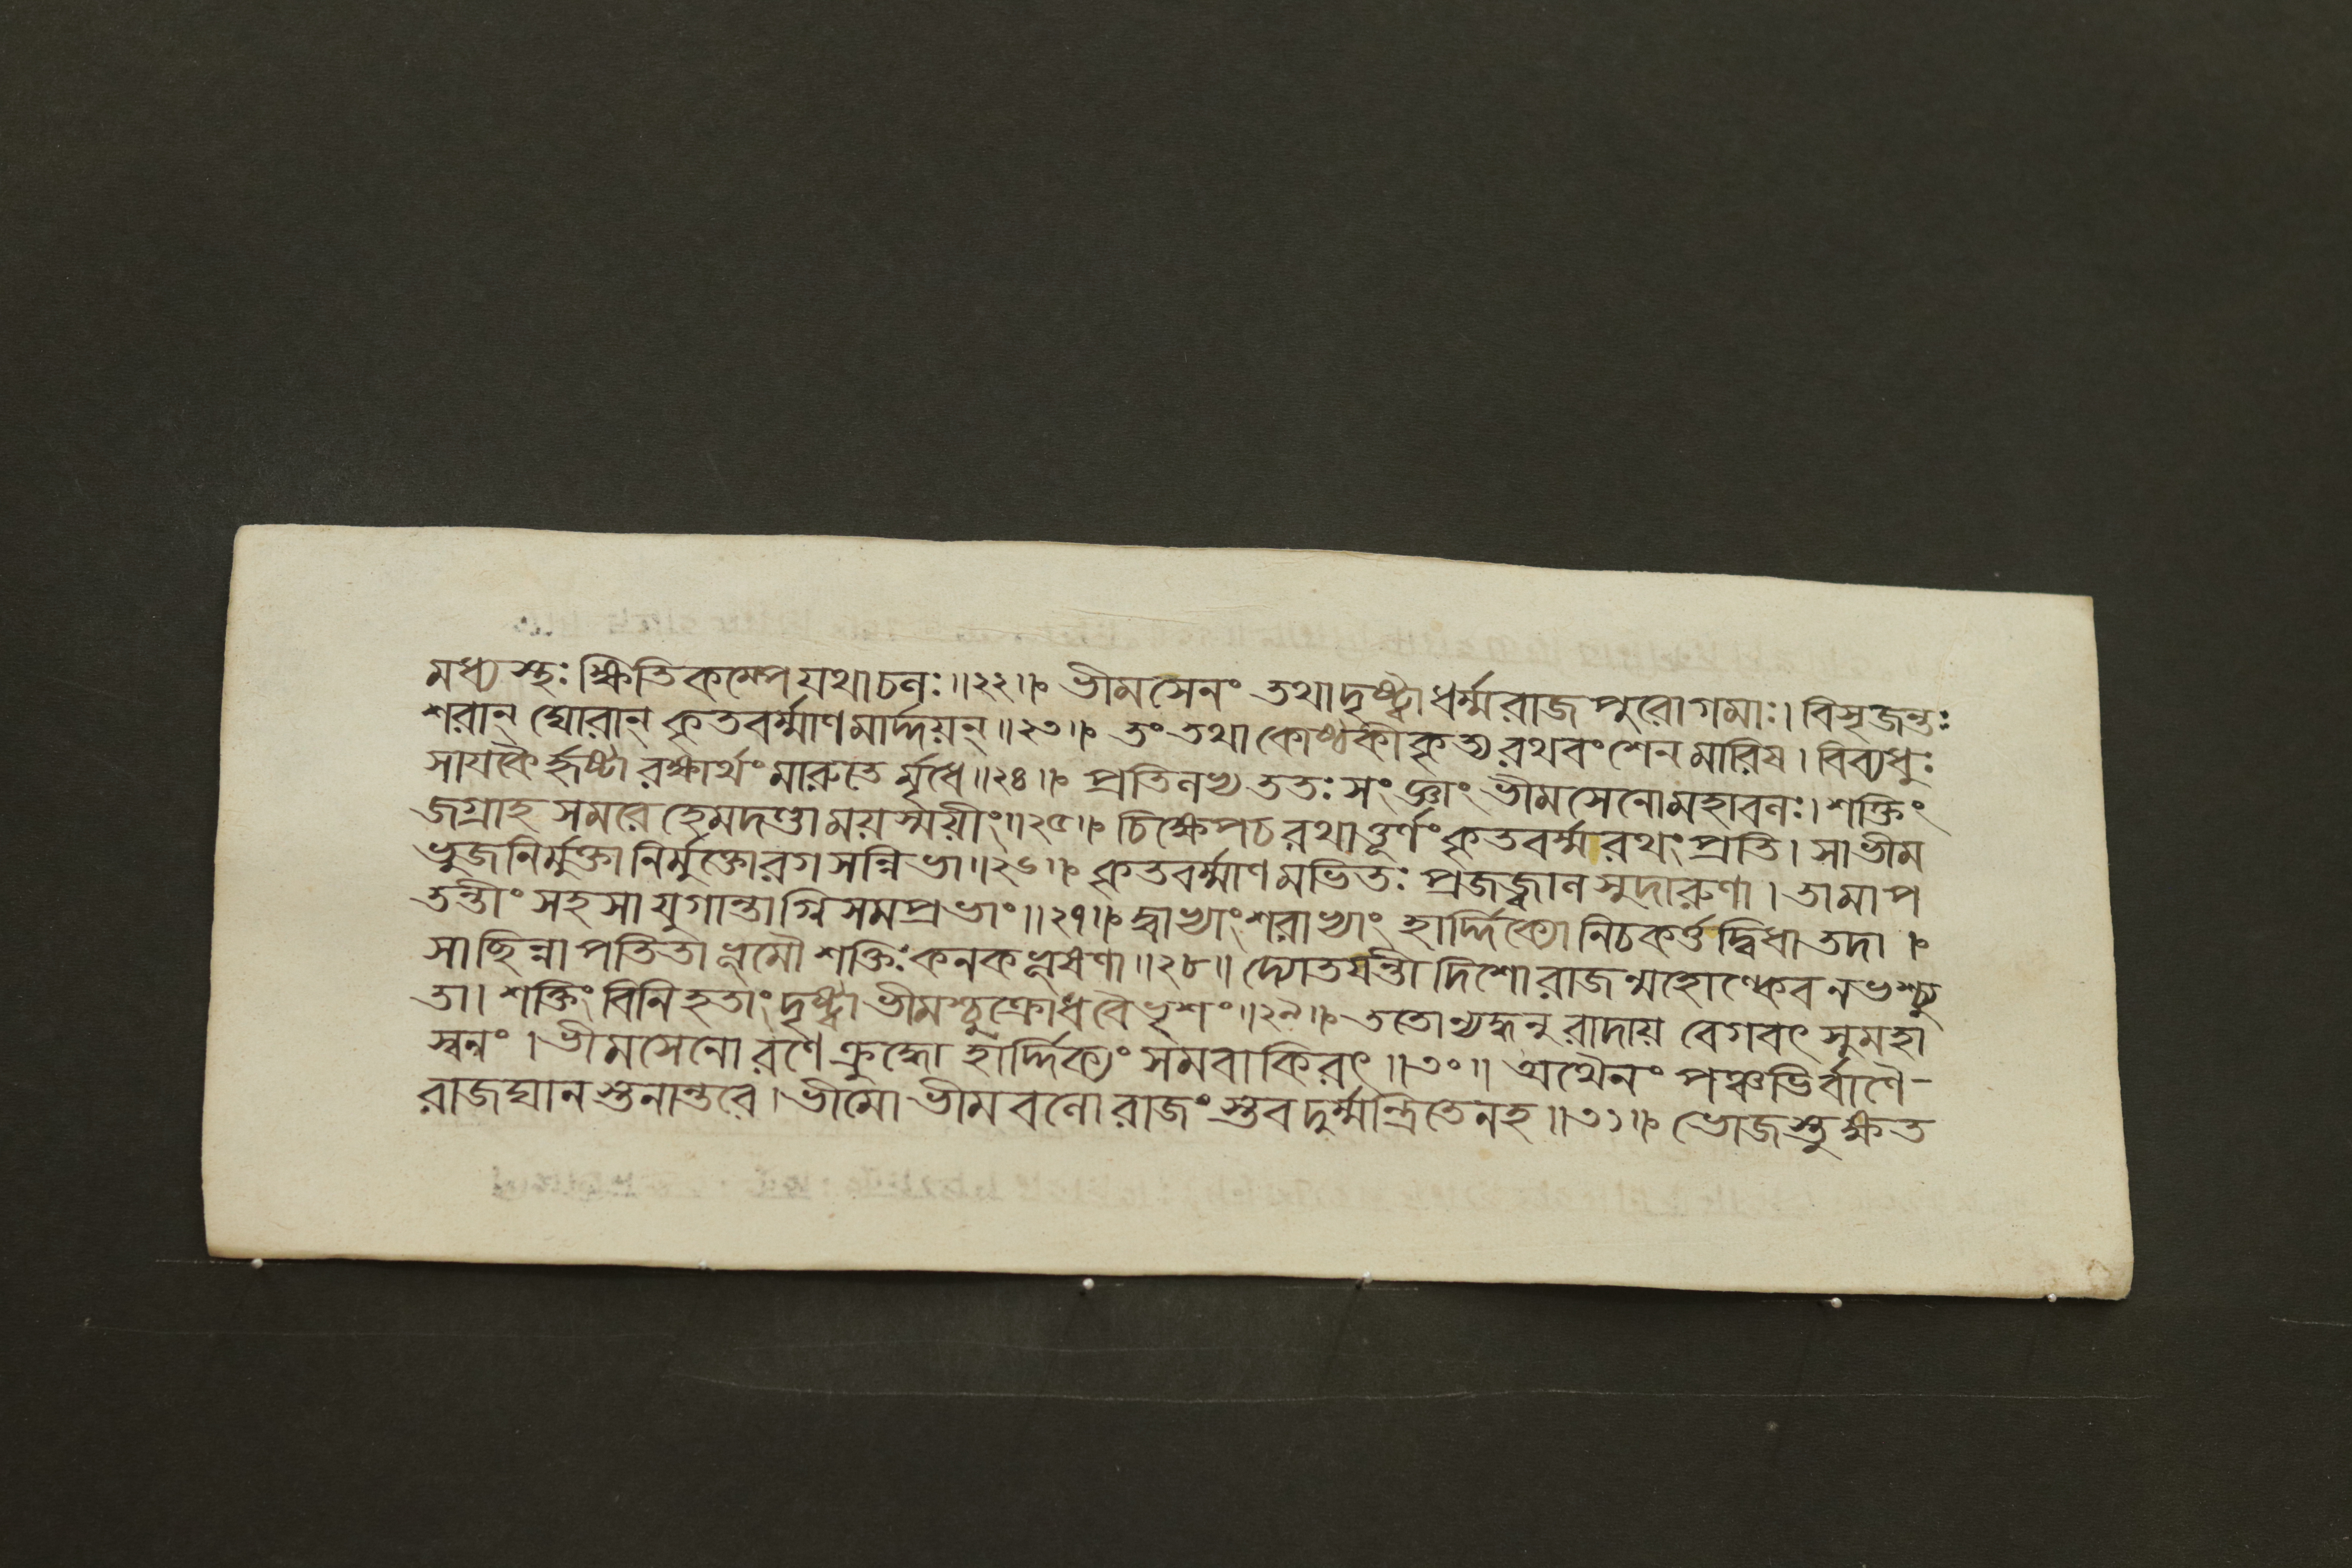 মধ্যস্থঃ ক্ষিতিকম্পে যথাচলঃ॥২২॥ ভীমসেনং তথাদৃষ্ট্বা ধর্ম্মরাজ পুরোগমাঃ। বিসৃজন্তঃ
শরান্ ঘোরান্ কৃতবর্ম্মাণমার্দ্দয়ন্॥২৩॥ তং তথা কোষ্ঠকীকৃত্য রথবংশেন মারিষ। বিব্যধুঃ
সায়কৈর্হৃষ্টা রক্ষার্থং মারুতের্মৃধে॥২৪॥ প্রতিলভ্য ততঃ সংজ্ঞাং ভীমসেনো মহাবলঃ। শক্তিং
জগ্রাহ সমরে হেমদণ্ডাময়স্ময়ীং॥২৫॥ চিক্ষেপ চ রথাত্তূর্ণং কৃতবর্ম্মরথং প্রতি। সা ভীম
ভুজনির্মুক্তা নির্মুক্তোরগসন্নিভা॥২৬॥ কৃতবর্ম্মাণমভিতঃ প্রজজ্বাল সুদারুণা। তামাপ
তন্তীং সহসা যুগান্তাগ্নিসমপ্রভাং॥২৭॥ দ্বাভ্যাং শরাভ্যাং হার্দ্দিক্যো নিচকর্ত্ত দ্বিধা তদা।
সা ছিন্না পতিতা ভূমৌ শক্তিঃ কনকভূষণা॥২৮॥ দ্যোতয়ন্তী দিশো রাজন্মহোল্কেব নভশ্চ্যু
তা। শক্তিং বিনিহতাং দৃষ্ট্বা ভীমশ্চুক্রোধ বৈ ভৃশং॥২৯॥ ততোন্যদ্ধনুরাদায় বেগবৎ সুমহা
স্বনং। ভীমসেনো রণে ক্রুদ্ধো হার্দ্দিক্যং সমবাকিরৎ॥৩০॥ অথৈনং পঞ্চভির্বাণৈ-
রাজঘান স্তনান্তরে। ভীমো ভীমবলো রাজংস্তব দুর্ম্মন্ত্রিতেন হ॥৩১॥ ভোজস্তু ক্ষত